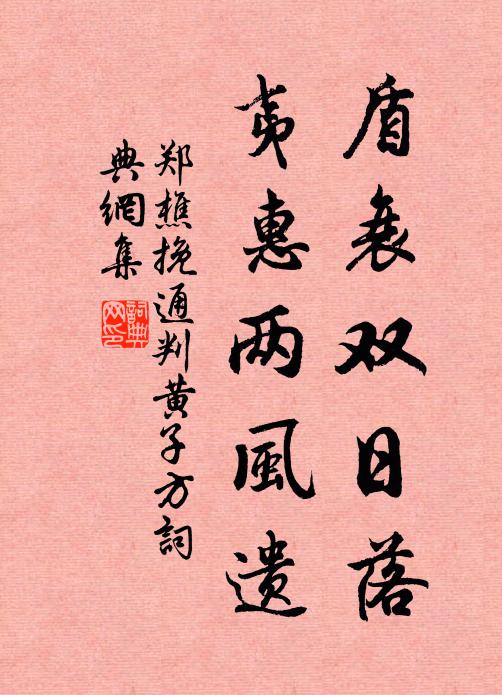 盾衰双日落
夷惠两風遗
郑樵挽通判黄子方詞
典網集
詞典网印